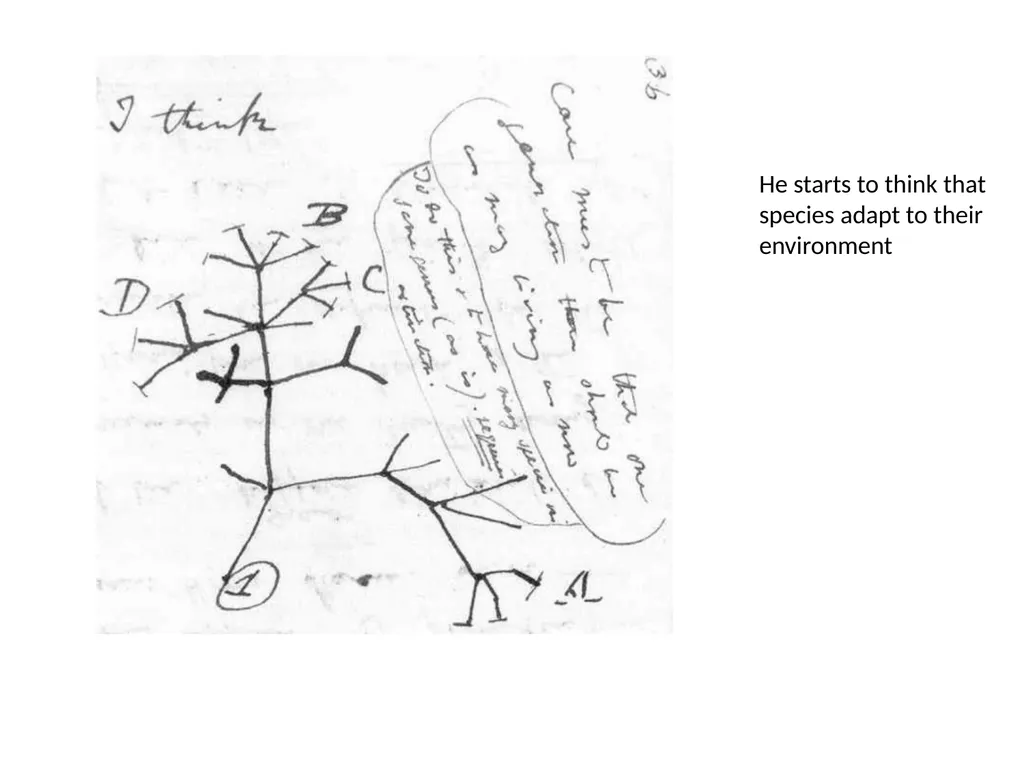 36
I think
Case must be that one
generation then should be
as many living as now
To do this & to have many species in
same genus (as is). requires
extinction.
B
C
D
A
1
He starts to think that
species adapt to their
environment